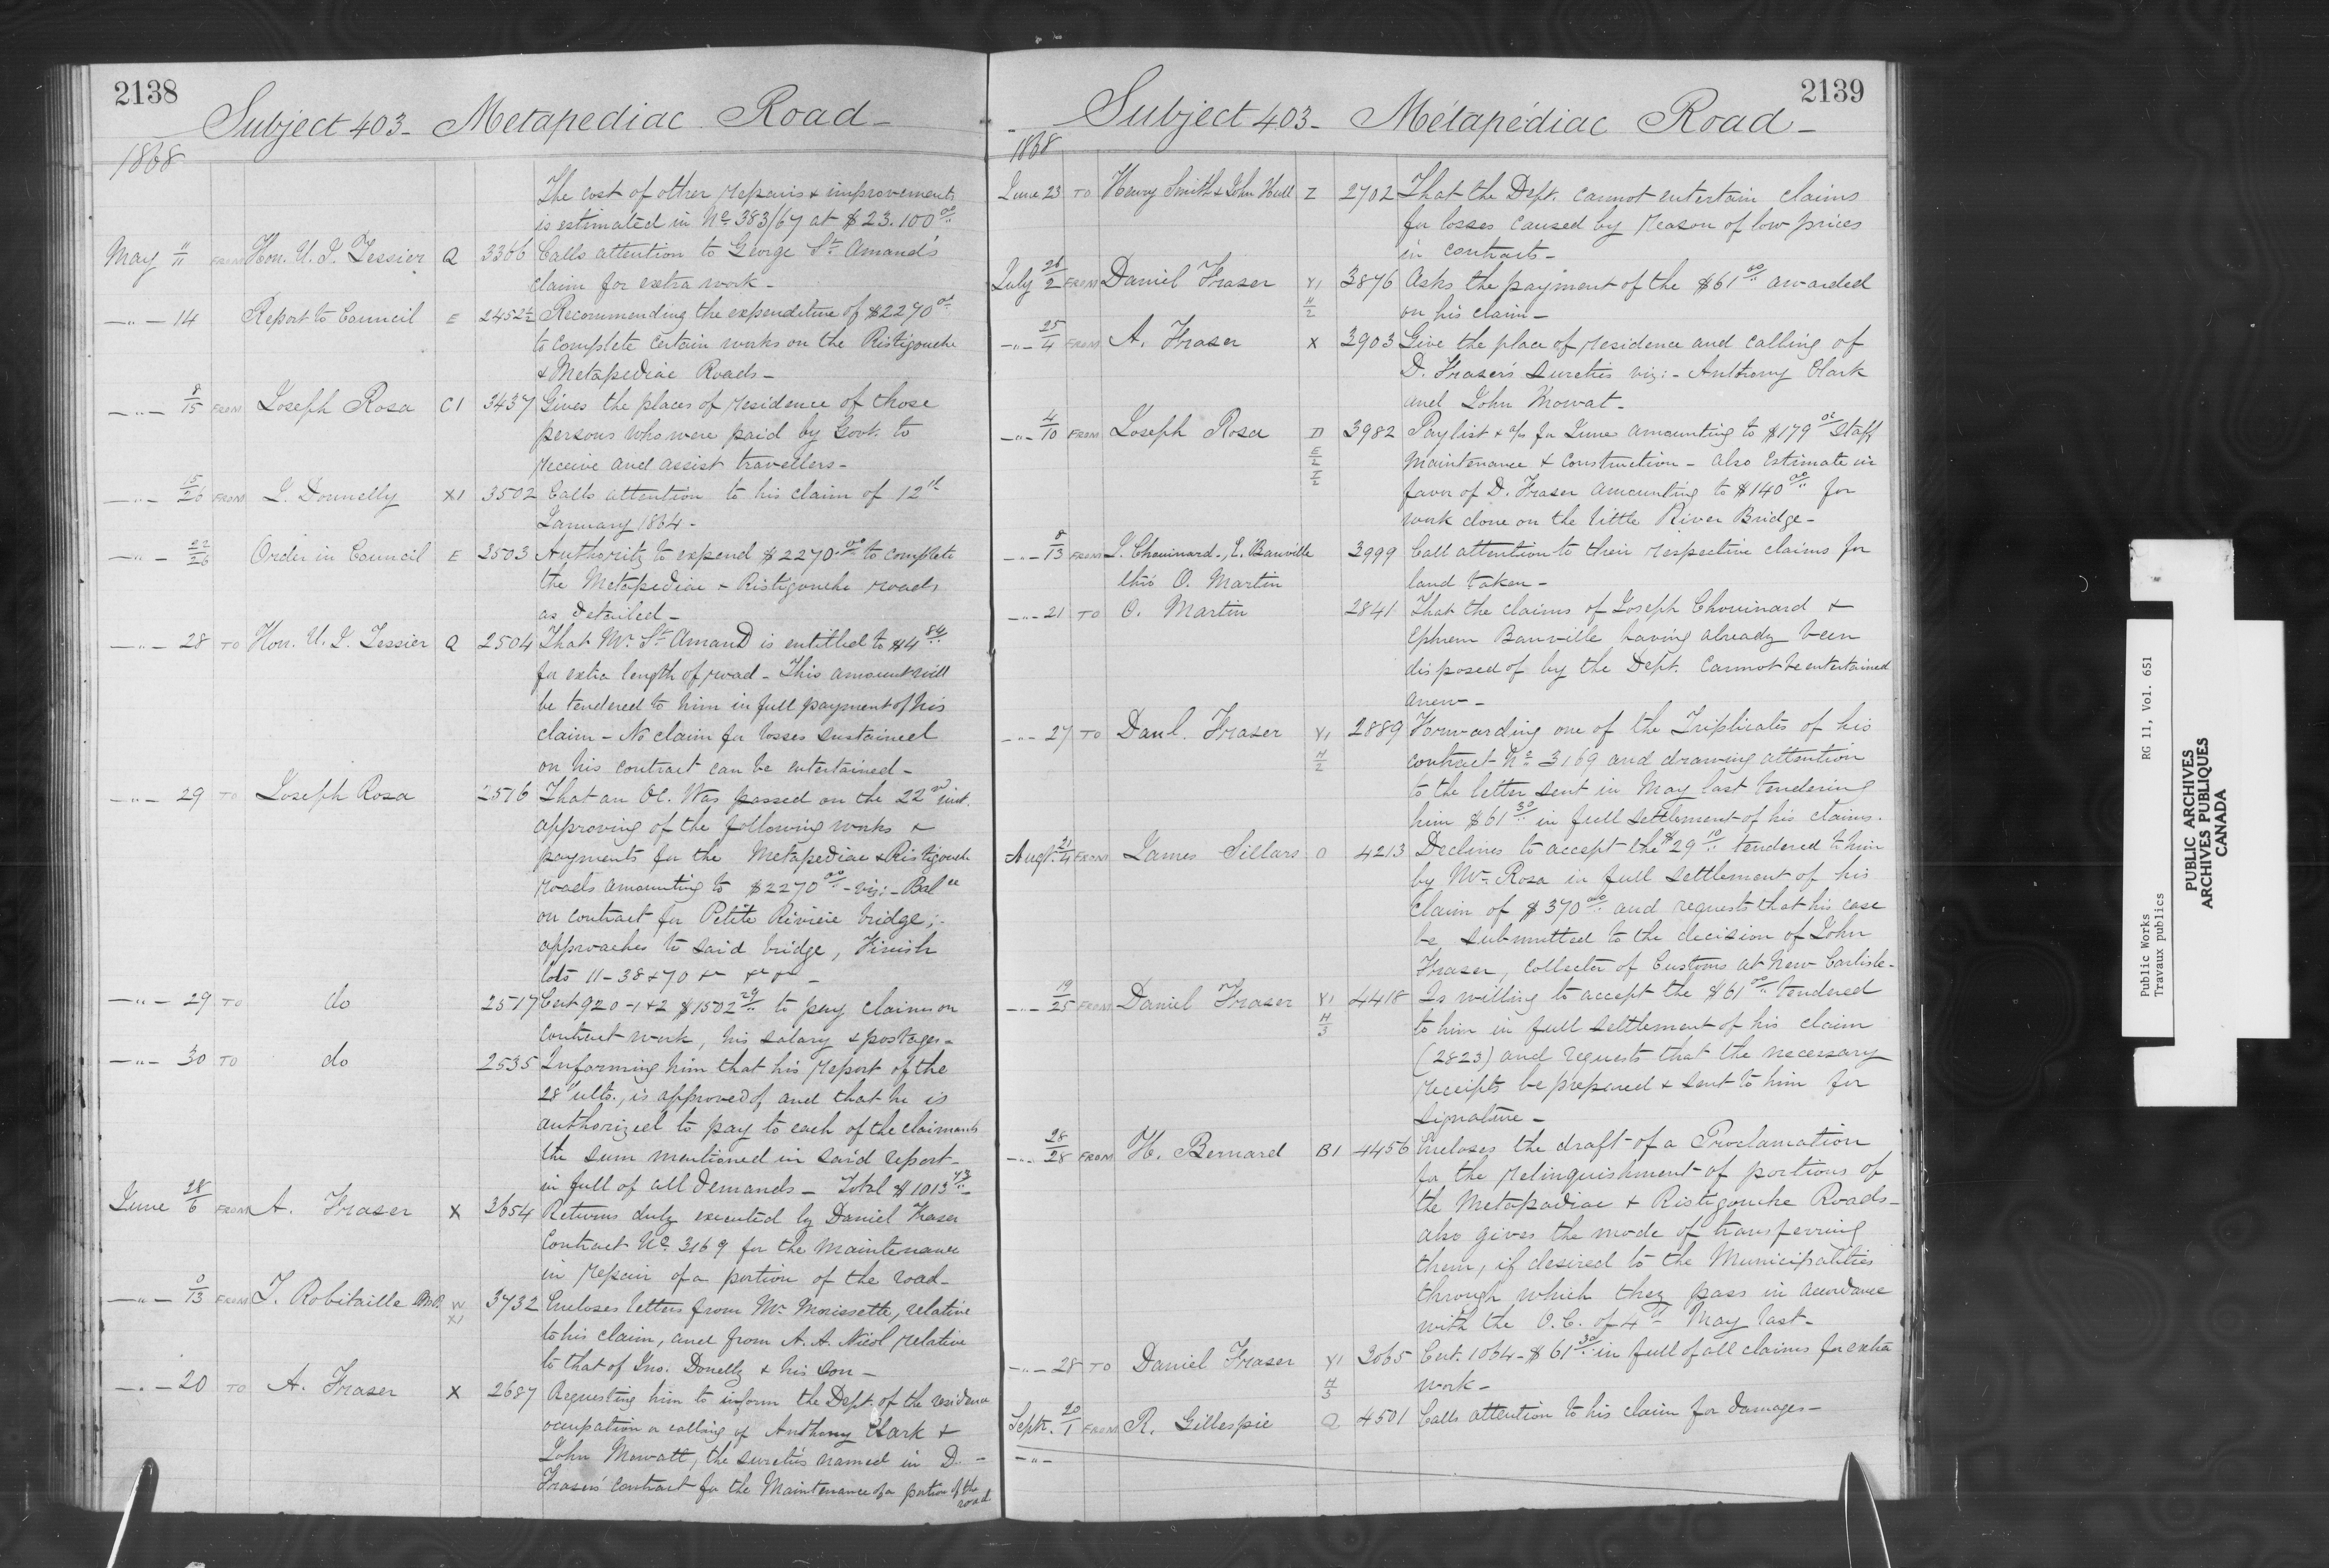 2138
Subject 403 - Metapediac Road -
1868
The cost of other repairs & improvements
is estimated in No. 383/67 at $23.100 00
May 11/11 FROM Hon. U. J. Tessier Q 3366 Calls attention to George St. Amand's
claim for extra work -
-"- 14 Report to Council E 2452½ Recommending the expenditure of $2270 00
to complete certain works on the Ristigouche
& Metapediac Roads -
-"- 8/15 FROM Joseph Rosa C1 3437 Gives the places of residence of those
persons who were paid by Govt. to
receive and assist travellers -
-"- 15/26 FROM J. Donnelly X1 3502 Calls attention to his claim of 12th
January 1864 -
-"- 22/26 Order in Council E 3503 Authority to expend $2270 00 to complete
the Metapediac & Ristigouche roads
as detailed -
-"- 28 TO Hon. U. J. Tessier Q 2504 That Mr. St. Amand is entitled to $4 84
for extra length of road - This amount will
be tendered to him in full payment of his
claim - No claim for losses sustained
on his contract can be entertained -
-"- 29 TO Joseph Rosa 2516 That an OC. Was passed on the 22nd inst.
approving of the following works &
payments for the Metapediac & Ristigouche
roads amounting to $2270 00 - viz: - Balce
on contract for Petite Rivière bridge;
approaches to said bridge, Finish
lots 11 - 38 & 70 &c &c &c -
-"- 29 TO do 2517 Cert 920 - 1 & 2 $1502 29 to pay claims on
contract work, his salary & postages -
-"- 30 TO do 2535 Informing him that his report of the
28th ulto., is approved of and that he is
authorized to pay to each of the claimants
the sum mentioned in said report -
in full of all demands - Total $1013 43
June 28/6 FROM A. Fraser X 3654 Returns duly executed by Daniel Fraser
Contract No. 3169 for the maintenance
in repair of a portion of the road -
-"- 0/13 FROM T. Robitaille M.P. W X1 3732 Encloses letters from Mr. Morissette, relative
to his claim, and from A. A. Nicol relative
to that of Jno. Donelly & his son -
-"- 20 TO A. Fraser X 2687 Requesting him to inform the Dept. of the residence
ocupation or calling of Anthony Clark &
John Mowatt, the sureties named in D. -
Fraser's contract for the Maintenance of a portion of the
road
2139
- Subject 403 - Métapédiac Road -
1868
June 23 TO Henry Smith & John Hull Z 2702 That the Dept. cannot entertain claims
for losses caused by reason of low prices
in contracts -
July 26/2 FROM Daniel Fraser Y1 H/2 3876 Asks the payment of the $61 00 awarded
on his claim -
-"- 25/4 FROM A. Fraser X 3903 Give the place of residence and calling of
D. Fraser's sureties viz: - Anthony Clark
and John Mowat -
-"- 4/10 FROM Joseph Rosa D 3982 Paylist & a/c for June amounting to $179 02 Staff
Maintenance & Construction - also Estimate in
favor of D. Fraser amounting to $140 00 for
work done on the little River Bridge -
-"- 8/13 FROM J. Chouinard, E. Banville 3999 Call attention to their respective claims for
thro' O. Martin land taken -
-"- 21 TO O. Martin 2841 That the claims of Joseph Chouinard &
Ephrem Banville having already been
disposed of by the Dept. cannot be entertained
anew -
-"- 27 TO Danl. Fraser Y1 H/2 2889 Forwarding one of the Triplicates of his
contract No. 3169 and drawing attention
to the letter sent in May last tendering
him $61 30 in full settlement of his claims.
Augt. 21/4 FROM James Sillars O 4213 Declines to accept the $29 10 tendered to him
by Mr. Rosa in full settlement of his
claim of $370 00 and requests that his case
be submitted to the decision of John
Fraser, Collector of Customs at New Carlisle -
-"- 19/25 FROM Daniel Fraser Y1 H/3 4418 Is willing to accept the $61 00 tendered
to him in full settlement of his claim
(2823) and requests that the necessary
receipts be prepared & sent to him for
signature -
-"- 28/28 FROM H. Bernard B1 4456 Encloses the draft of a Proclamation
for the relinquishment of portions of
the Metapediac & Ristigouche Roads -
also gives the mode of transferring
them, if desired to the Municipalities
through which they pass in accordance
with the O.C. of 4th May last -
-"- 28 TO Daniel Fraser Y1 H/3 3065 Cert. 1064 - $61 30 in full of all claims for extra
work -
Septr. 20/1 FROM R. Gillespie Q 4501 Calls attention to his claim for damages -
-"-
Public Works RG 11, Vol. 651
Travaux publics
PUBLIC ARCHIVES
ARCHIVES PUBLIQUES
CANADA